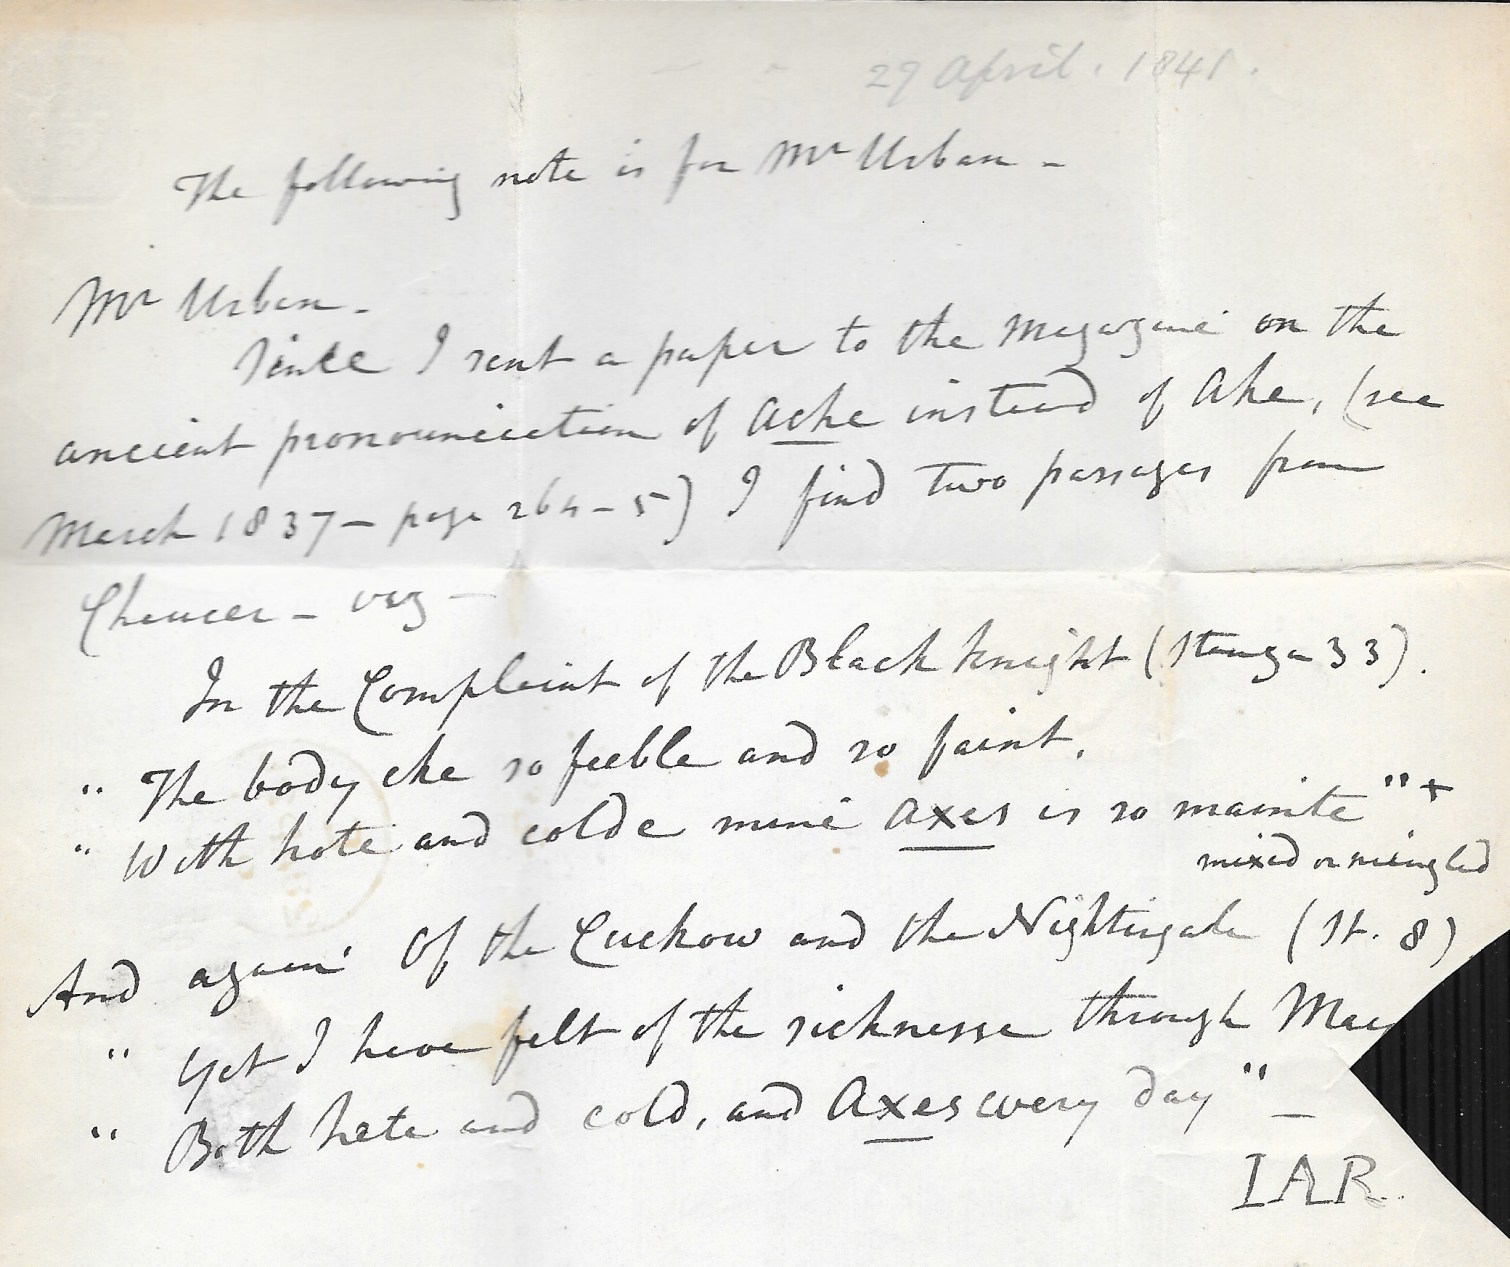 29 April. 1841.
The following note is for Mr Urban -
Mr Urban -
Since I sent a paper to the Magazine on the
ancient pronounciation of Ache instead of Ake, (see
March 1837 - page 264-5) I find two passages from
Chaucer - viz -
In the Complaint of the Black Knight (Stanza 33).
" The body eke so feeble and so faint,
" With hote and colde mine Axes is so mainte" +
mixed or mingled
And again Of the Cuckow and the Nightingale (St. 8)
" Yet I have felt of the sicknesse through May
" Both hete and cold, and Axes every day" -
IAR.